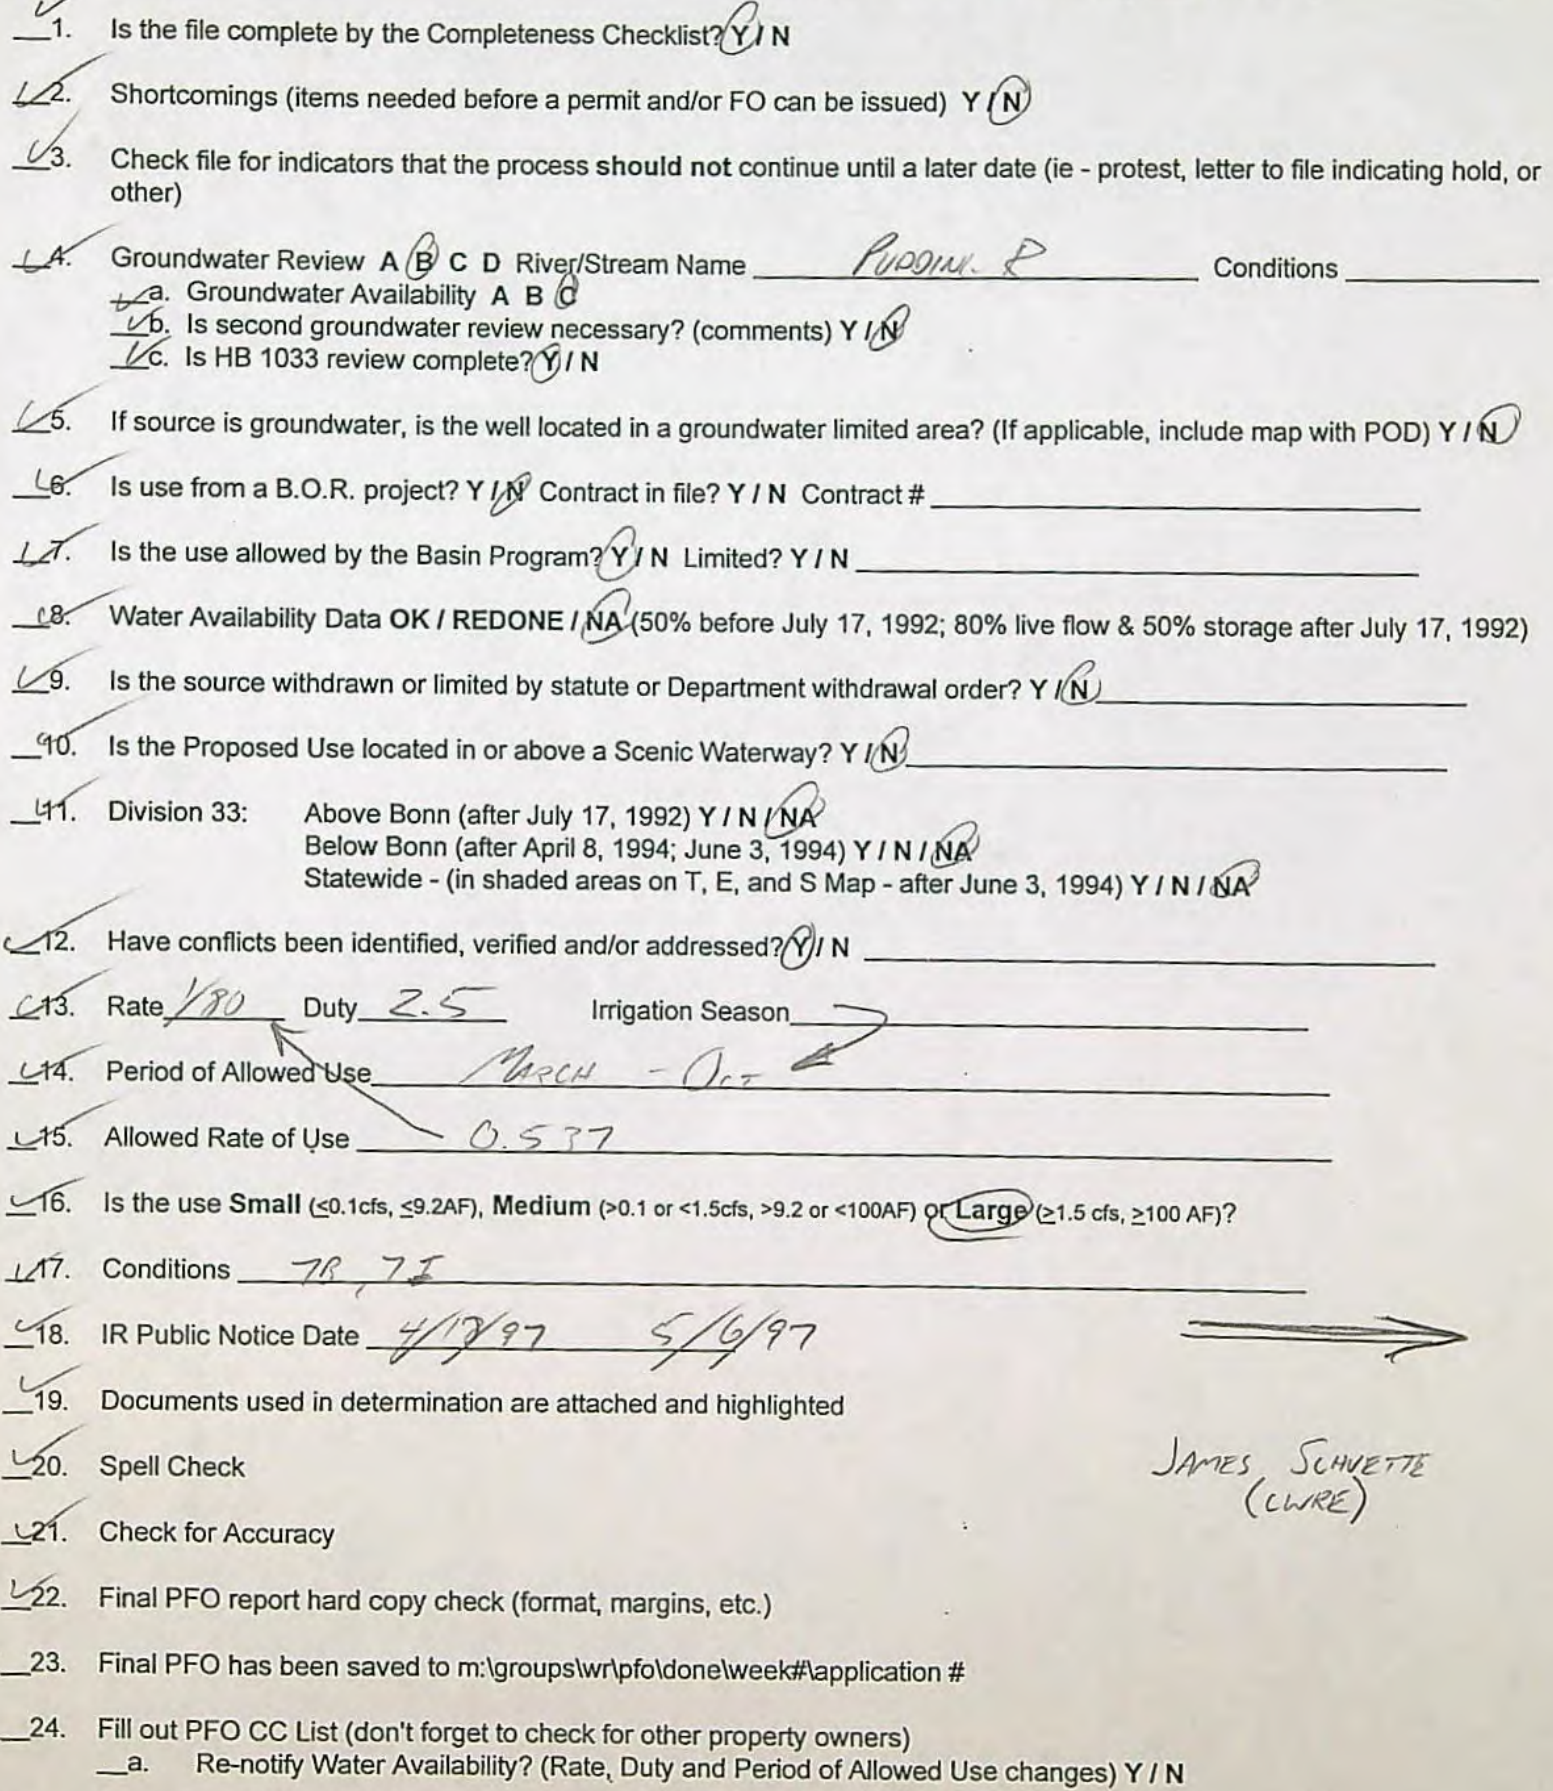 1. Is the file complete by the Completeness Checklist? Y / N
2. Shortcomings (items needed before a permit and/or FO can be issued) Y / N
3. Check file for indicators that the process should not continue until a later date (ie - protest, letter to file indicating hold, or
other)
4. Groundwater Review A B C D River/Stream Name PUDDING R Conditions
a. Groundwater Availability A B C
b. Is second groundwater review necessary? (comments) Y / N
c. Is HB 1033 review complete? Y / N
5. If source is groundwater, is the well located in a groundwater limited area? (If applicable, include map with POD) Y / N
6. Is use from a B.O.R. project? Y / N Contract in file? Y / N Contract #
7. Is the use allowed by the Basin Program? Y / N Limited? Y / N
8. Water Availability Data OK / REDONE / NA (50% before July 17, 1992; 80% live flow & 50% storage after July 17, 1992)
9. Is the source withdrawn or limited by statute or Department withdrawal order? Y / N
10. Is the Proposed Use located in or above a Scenic Waterway? Y / N
11. Division 33: Above Bonn (after July 17, 1992) Y / N / NA
Below Bonn (after April 8, 1994; June 3, 1994) Y / N / NA
Statewide - (in shaded areas on T, E, and S Map - after June 3, 1994) Y / N / NA
12. Have conflicts been identified, verified and/or addressed? Y / N
13. Rate 1/80 Duty 2.5 Irrigation Season
14. Period of Allowed Use MARCH - OCT
15. Allowed Rate of Use 0.537
16. Is the use Small (≤0.1cfs, ≤9.2AF), Medium (>0.1 or <1.5cfs, >9.2 or <100AF) or Large (≥1.5 cfs, ≥100 AF)?
17. Conditions 7I
18. IR Public Notice Date 5/6/97
19. Documents used in determination are attached and highlighted
20. Spell Check
JAMES SCHUETTE
(CWRE)
21. Check for Accuracy
22. Final PFO report hard copy check (format, margins, etc.)
23. Final PFO has been saved to m:\groups\wr\pfo\done\week#\application #
24. Fill out PFO CC List (don't forget to check for other property owners)
a. Re-notify Water Availability? (Rate, Duty and Period of Allowed Use changes) Y / N